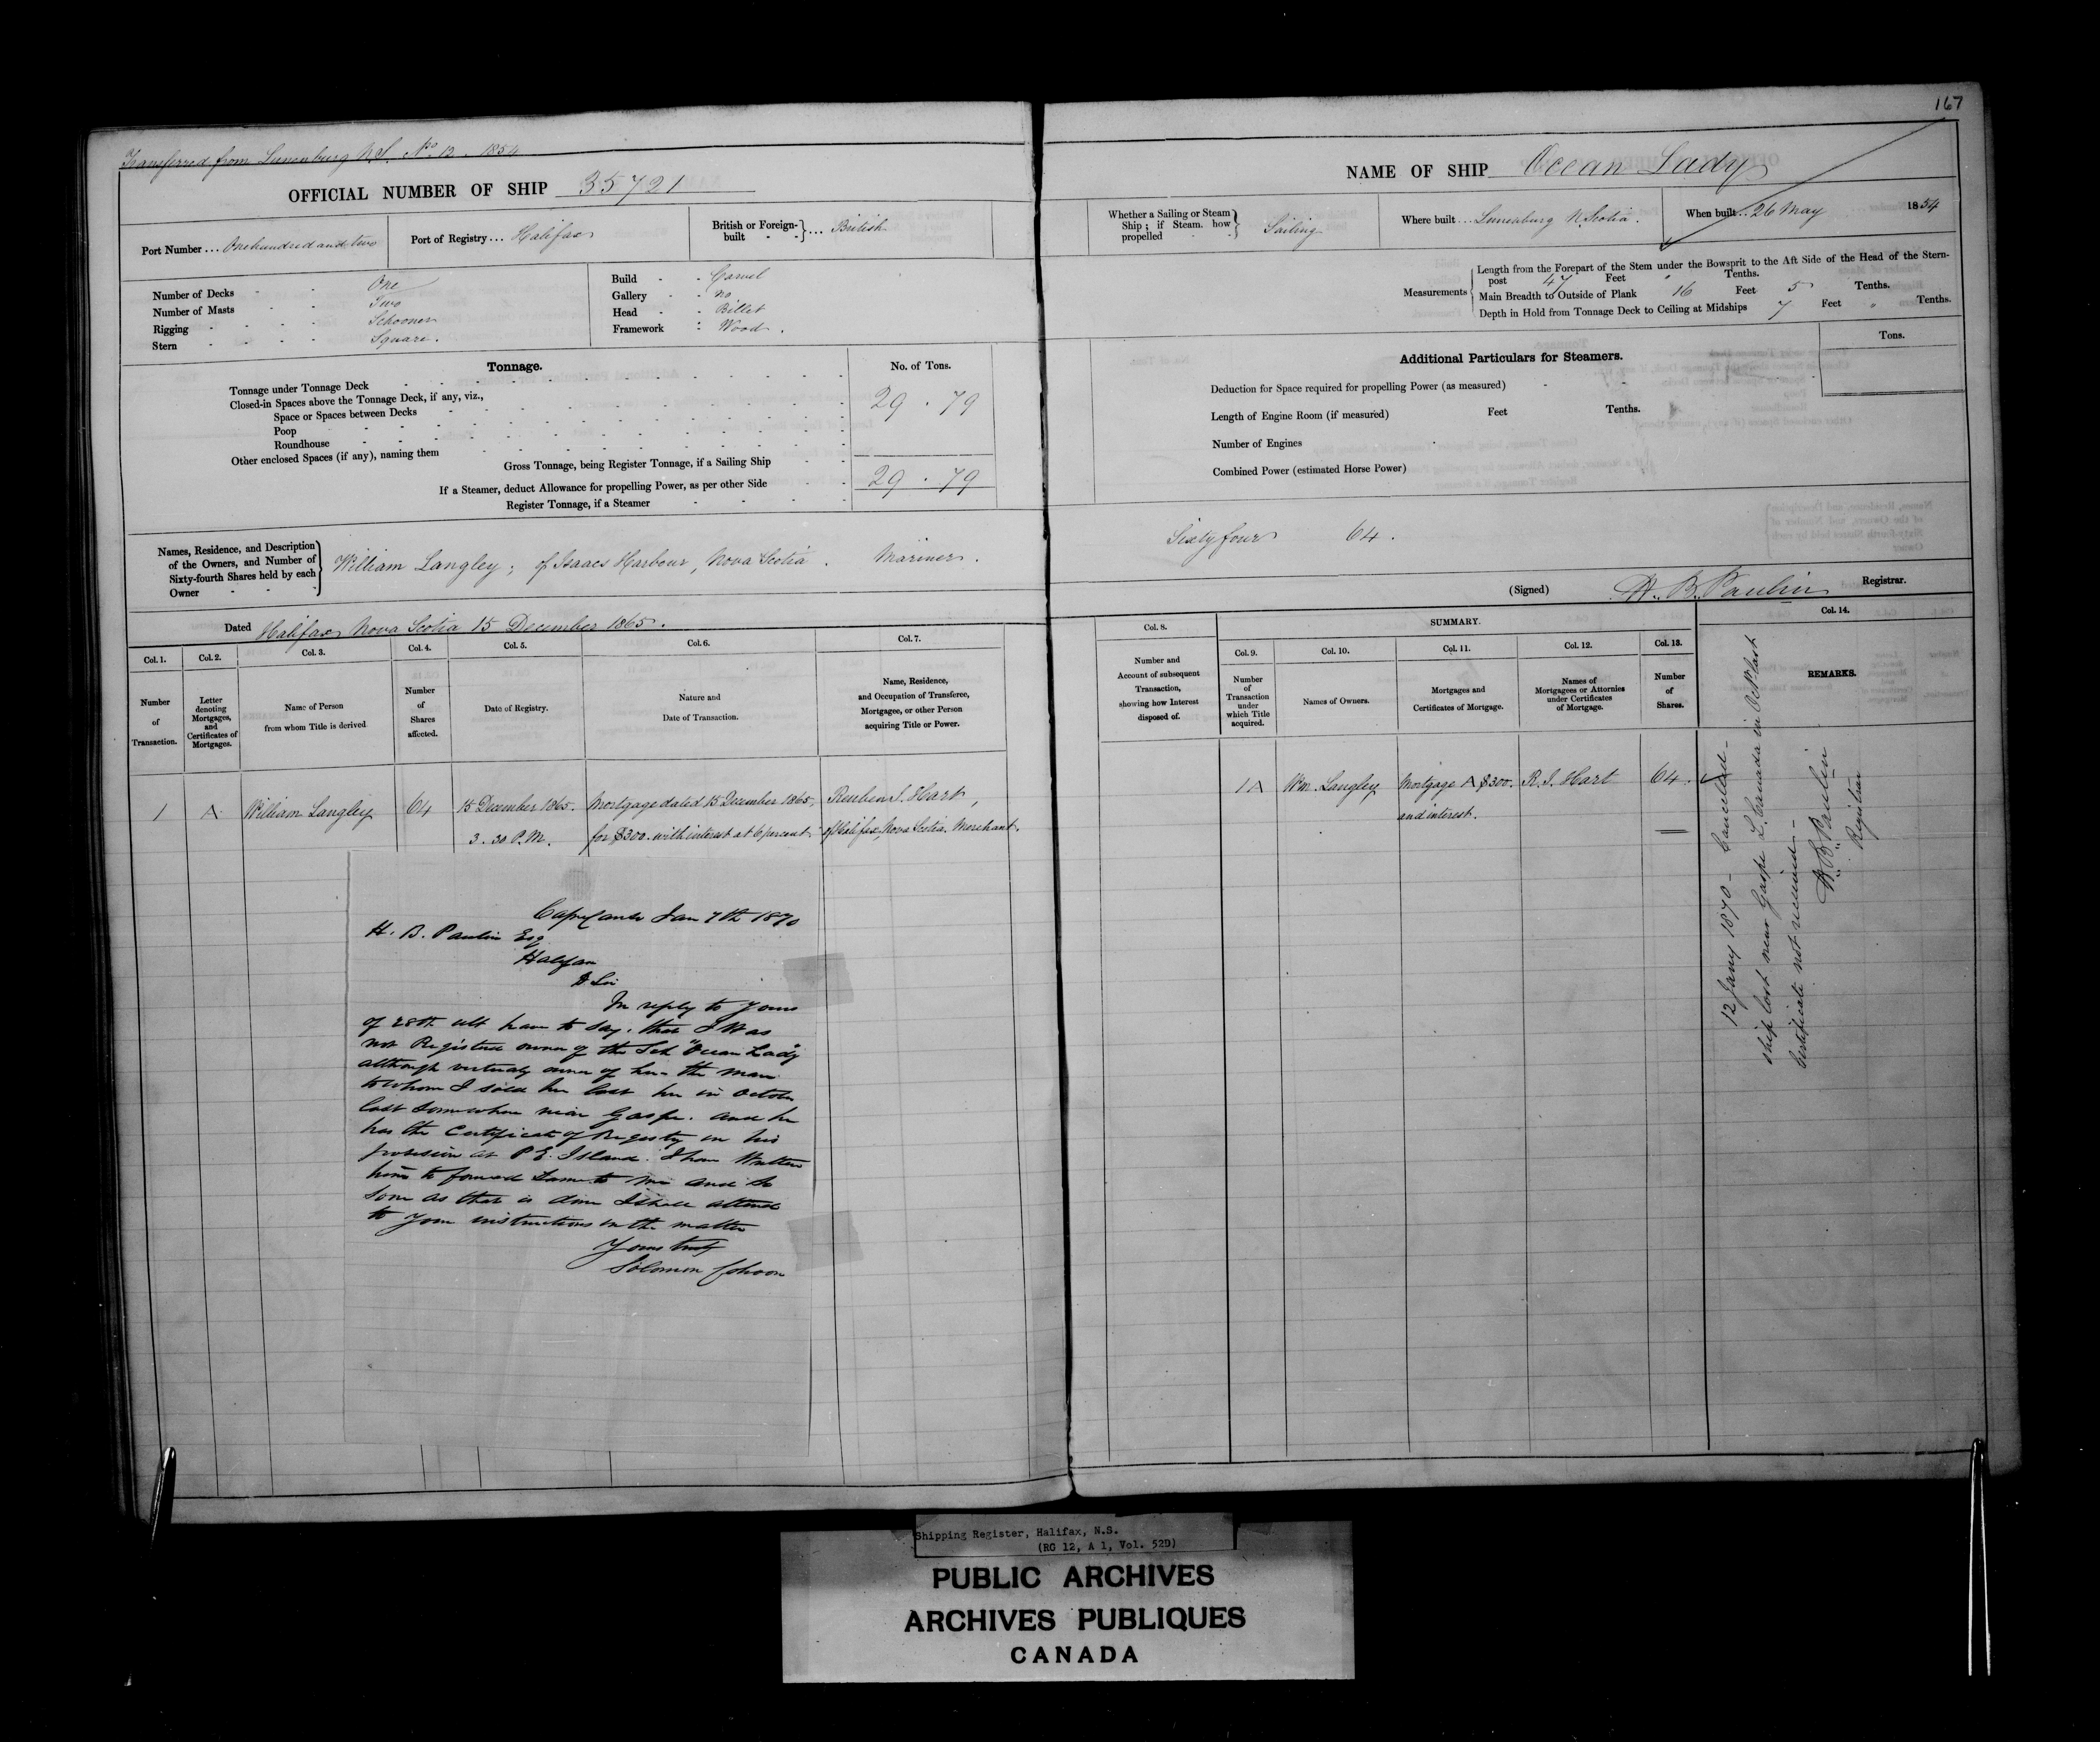 167
Transferred from Lunenburg N.S. No. 12. 1854
OFFICIAL NUMBER OF SHIP 35721
Port Number ... One hundred and two
Port of Registry ... Halifax
British or Foreign-built } ... British
Number of Decks - One
Number of Masts - Two
Rigging - Schooner
Stern - Square.
Build - Carvel
Gallery - no
Head - Billet
Framework : Wood.
Tonnage.
No. of Tons.
Tonnage under Tonnage Deck
29 . 79
Closed-in Spaces above the Tonnage Deck, if any, viz.,
Space or Spaces between Decks
Poop
Roundhouse
Other enclosed Spaces (if any), naming them
Gross Tonnage, being Register Tonnage, if a Sailing Ship
29 . 79
If a Steamer, deduct Allowance for propelling Power, as per other Side
Register Tonnage, if a Steamer
Names, Residence, and Description
of the Owners, and Number of
Sixty-fourth Shares held by each
Owner
William Langley; of Isaacs Harbour, Nova Scotia. Mariner.
Dated Halifax Nova Scotia 15 December 1865.
NAME OF SHIP Ocean Lady
Whether a Sailing or Steam
Ship; if Steam. how
propelled
Sailing
Where built ... Lunenburg N. Scotia.
When built .. 26 May 1854
Measurements
Length from the Forepart of the Stem under the Bowsprit to the Aft Side of the Head of the Stern-
post 47 Feet " Tenths.
Main Breadth to Outside of Plank 16 Feet 5 Tenths.
Depth in Hold from Tonnage Deck to Ceiling at Midships 7 Feet " Tenths.
Additional Particulars for Steamers.
Tons.
Deduction for Space required for propelling Power (as measured)
Length of Engine Room (if measured) Feet Tenths.
Number of Engines
Combined Power (estimated Horse Power)
Sixty four 64.
(Signed) H. B. Paulin Registrar.
Col. 1.
Number
of
Transaction.
Col. 2.
Letter
denoting
Mortgages,
and
Certificates of
Mortgages.
Col. 3.
Name of Person
from whom Title is derived
Col. 4.
Number
of
Shares
affected.
Col. 5.
Date of Registry.
Col. 6.
Nature and
Date of Transaction.
Col. 7.
Name, Residence,
and Occupation of Transferee,
Mortgagee, or other Person
acquiring Title or Power.
Col. 8.
Number and
Account of subsequent
Transaction,
showing how Interest
disposed of.
SUMMARY.
Col. 9.
Number
of
Transaction
under
which Title
acquired.
Col. 10.
Names of Owners.
Col. 11.
Mortgages and
Certificates of Mortgage.
Col. 12.
Names of
Mortgagees or Attornies
under Certificates
of Mortgage.
Col. 13.
Number
of
Shares.
Col. 14.
REMARKS.
1 A. William Langley 64 15 December 1865. Mortgage dated 15 December 1865, Reuben I. Hart,
3.30 P.M. for $300. with interest at 6 percent of Halifax, Nova Scotia. Merchant.
1 A Wm. Langley Mortgage A $300. R. I. Hart 64.
and interest.
12 Jany 1870 - Cancelled -
ship lost near Gaspe L. Canada in Oct last
Certificate not received -
H. B. Paulin
Registrar
Jan 7th 1870
H. B. Paulin Esq
Halifax
D Sir
In reply to Yours
of 28th ult have to say. that I was
not Registered owner of the Sch "Ocean Lady"
although virtualy owner of her - the man
to whom I sold her lost her in October
last somewhere near Gaspe. and he
has the Certificate of Registry in his
possession at P.E. Island. I have Written
him to forward same to me and so
soon as that is done I shall attend
to your instructions in the matter
Yours truly
Solomon Cohoon
Shipping Register, Halifax, N.S.
(RG 12, A 1, Vol. 52D)
PUBLIC ARCHIVES
ARCHIVES PUBLIQUES
CANADA